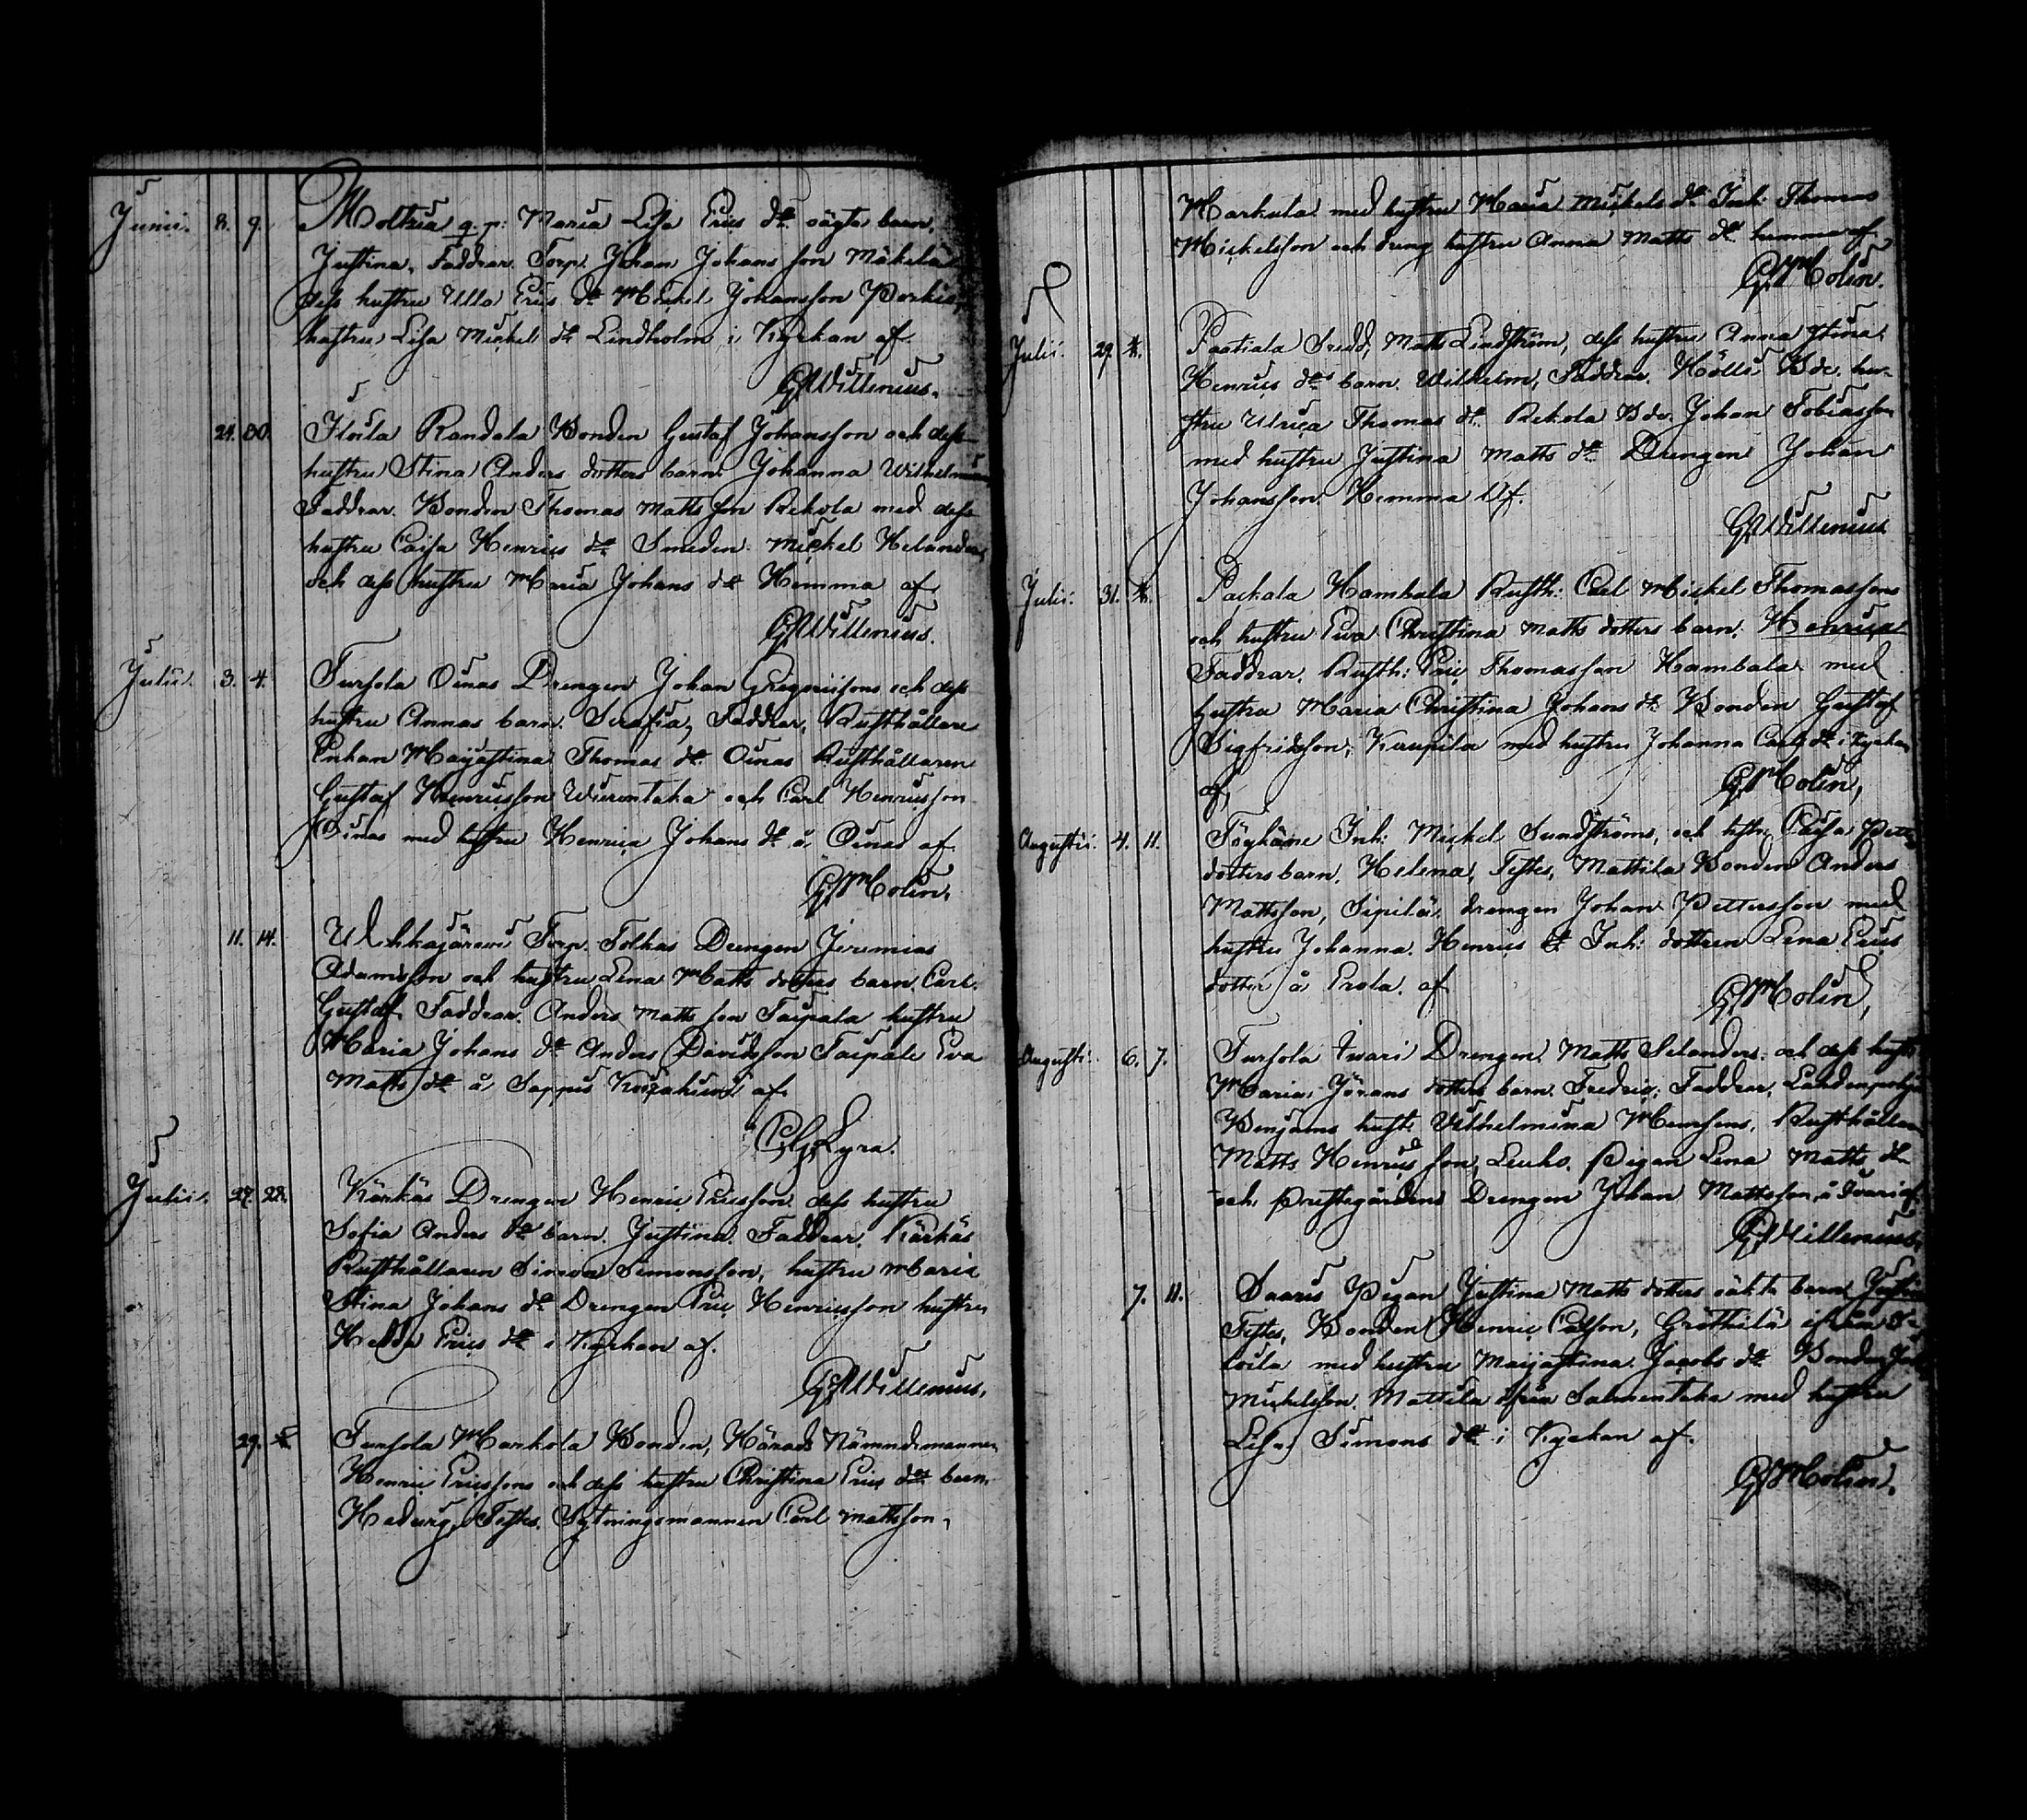 Junii. 8. 9. Moltsia q. p. Maria Lisa Erics dr oägta barn,
Justina, Faddrar. Torp. Johan Johans son Mäkelä
dess hustru Ulla Erics dr Mickel Johansson
hustru Lisa Mickels dr Lindholm i Kyrkan af
GWillenius.
21. 00. Randala Bonden Gustaf Johansson och dess
hustru Stina Anders dotters barn Johanna Wilhelmina
Faddrar. Bonden Thomas Matts son Rekola med dess
hustru Caisa Henrics dr Smeden Mickel Helander,
och dess hustru Maria Johans dr Hemma af
GWillenius.
Julii. 3. 4. Tursola Oinas Drengen Johan Gregoriisons och dess
hustru Annas barn. Serafia, Faddrar, Rusthållare
Enkan Maijastina Thomas dr Oinas Rusthållaren
Gustaf Henricsson Wuorentaka och Carl Henricsson
Oinas med hustru Henrica Johans dr å Oinas af
G Molin.
11. 14. Torp. Tolkas Drengen Jeremias
Adamsson och hustru Lena Matts dotters barn. Carl
Gustaf. Faddrar. Anders Matts son Taipale hustru
Maria Johans dr Anders Davidsson Taipale Eva
Matts dr å af
Lyra.
Julii. 27. 28. Kärkäs Drengen Henric Ericsson dess hustru
Sofia Anders dr barn. Justina. Faddrar. Kärkäs
Rusthållaren Simon Simonsson, hustru Maria
Stina Johans dr Drengen Eric Henricsson hustru
Hedda Erics dr i Kyrkan af.
GWillenius.
29. Tursola Markola Bonden, Härads Nämndemannen
Henric Ericssons och dess hustru Christina Erics drs barn.
Hedvig, Testes. Sytningsmannen Carl Mattsson,
Markula med hustru Maria Mickels dr Inh: Thomas
Mickelsson och dreng hustru Anna Matts dr hemma af
G Molin.
Julii. 29. Paatiala Sredd, Matts Lindström, dess hustru Anna Stina
Henrics drs barn. Wilhelm, Faddrar. Hölli Bde. hu-
stru Ulrica Thomas dr Rekola Bde. Johan Tobiasson
med hustru Justina Matts dr Drengen Johan
Johansson. Hemma Af.
GWillenius
Julii. 31. Hambala Rusth: Carl Mickel Thomassons
och hustru Eva Christina Matts dotters barn. Henrica
Faddrar. Rusth: Eric Thomasson Hambala med
hustru Maria Christina Johans dr Bonden Gustaf
Sigfridsson, Kaupila med hustru Johanna Carls dr i Kyrkan
af,
G Molin,
Augustii. 4. 11. Inh: Mickel Sundströms, och hstr, Caisa Petters
dotters barn. Helena, Testes, Mattila Bonden Anders
Mattsson, Sipilä, drengen Johan Pettersson med
hustru Johanna. Henrics dr Inh: dottren Lena Erics
dotter å Erola. af
G Molin,
Augusti. 6. 7. Tursola Iwari Drengen Matts Selanders och dess hustru
Maria Jörans dotters barn. Fredric; Faddrar,
Benjams hustr Vilhelmina Rusthållaren
Matts Henrics son, Pigan Lena Matts dr
och Prestegårdens Drengen Johan Mattsson å Ivari af.
GWillenius.
7. 11. Saaris Pigan Justina Matts dotters oäkta barn Justina
Testes, Bonden Henric Carlson,
med hustru Maijastina Jacobs dr Bonden
Mickelsson, Mattila ifrån Salmentaka med hustru
Lisa, Simons dr i Kyrkan af.
G Molin.